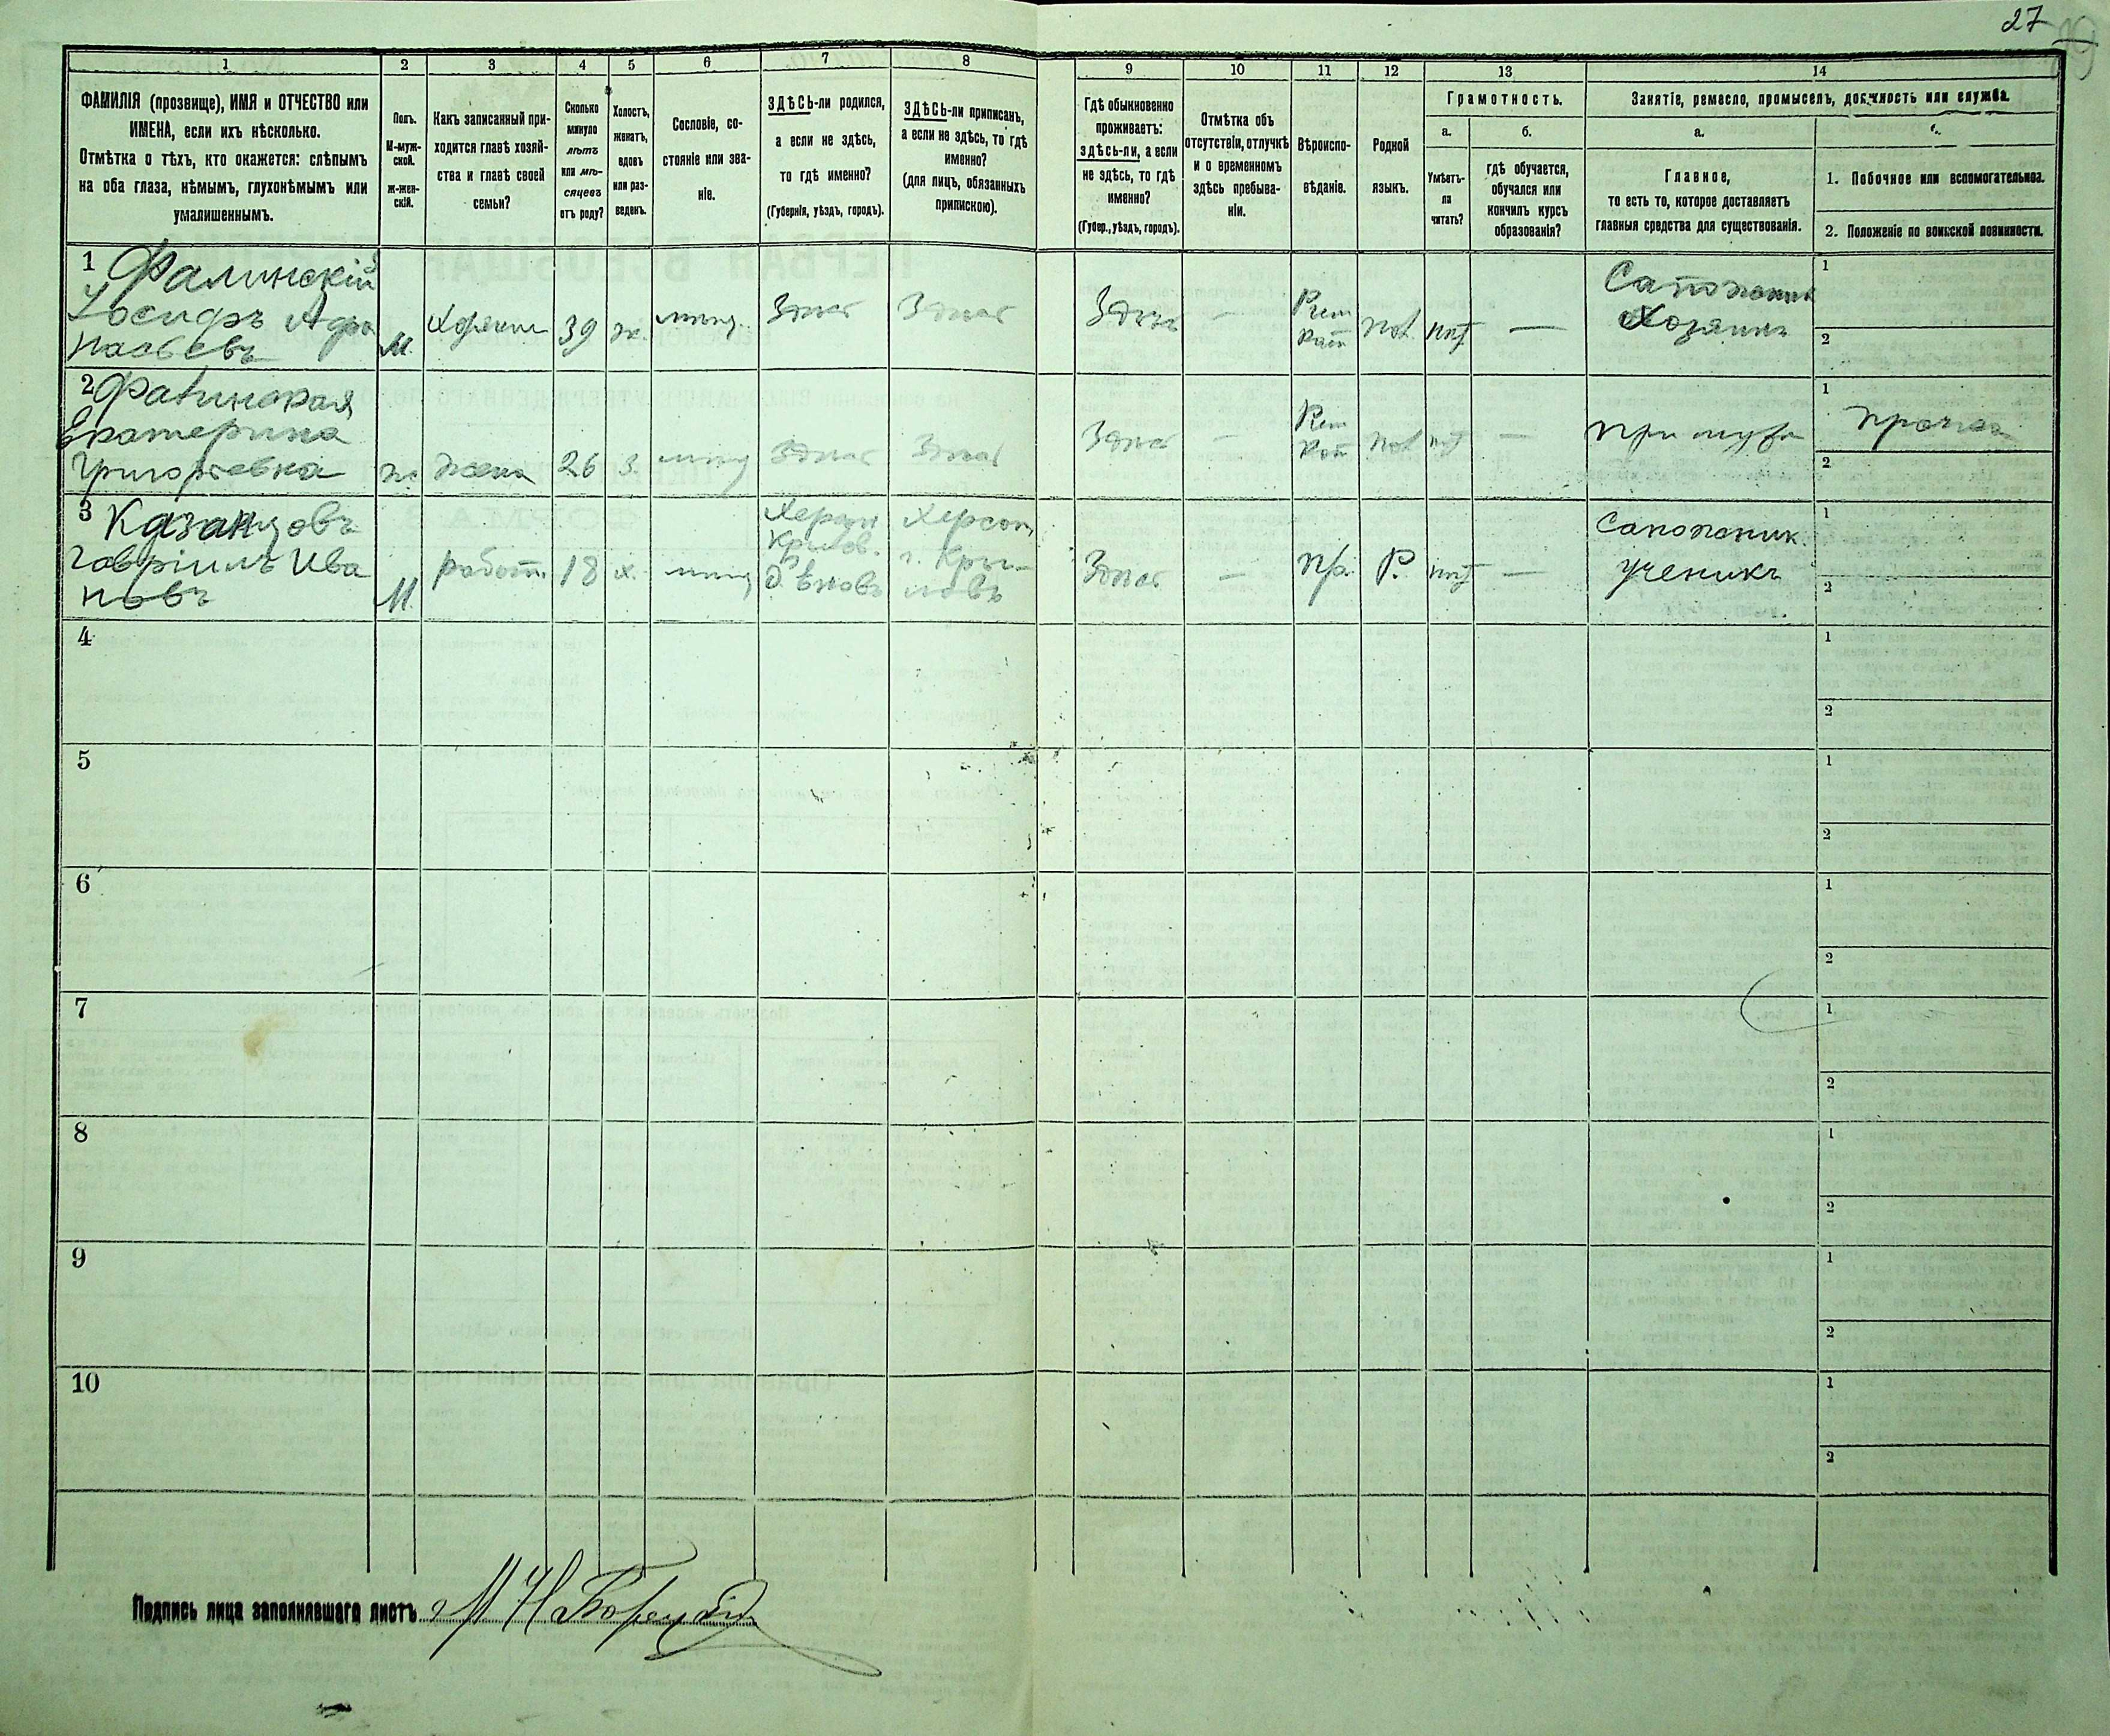 27
1 2 3 4 5 6 7 8 9 10 11 12 13 14
ФАМИЛІЯ (прозвище), ИМЯ и ОТЧЕСТВО или
ИМЕНА, если ихъ нѣсколько.
Отмѣтка о тѣхъ, кто окажется: слѣпымъ
на оба глаза, нѣмымъ, глухонѣмымъ или
умалишеннымъ.
Полъ.
М-муж-
ской.
ж-жен-
скій.
Какъ записанный при-
ходится главѣ хозяй-
ства и главѣ своей
семьи?
Сколько
минуло
лѣтъ
или мѣ-
сяцевъ
отъ роду?
Холостъ,
женатъ,
вдовъ
или раз-
веденъ.
Сословіе, со-
стояніе или зва-
ніе.
ЗДѢСЬ-ли родился,
а если не здѣсь,
то гдѣ именно?
(Губернія, уѣздъ, городъ).
ЗДѢСЬ-ли приписанъ,
а если не здѣсь, то гдѣ
именно?
(для лицъ, обязанныхъ
припискою).
Гдѣ обыкновенно
проживаетъ:
здѣсь-ли, а если
не здѣсь, то гдѣ
именно?
(Губер., уѣздъ, городъ).
Отмѣтка объ
отсутствіи, отлучкѣ
и о временномъ
здѣсь пребыва-
ніи.
Вѣроиспо-
вѣданіе.
Родной
языкъ.
Грамотность.
а. б.
Умѣетъ-
ли
читать?
гдѣ обучается,
обучался или
кончилъ курсъ
образованія?
Занятіе, ремесло, промыселъ, должность или служба.
а.
Главное,
то есть то, которое доставляетъ
главныя средства для существованія.
1. Побочное или вспомогательное.
2. Положеніе по воинской повинности.
1 Фалинскій
Іосифъ Афа
насьевъ
М. Хозяинъ 39 ж. мѣщ. Здѣсь Здѣсь Здѣсь — Рим Кат Пол нѣт —
Сапожник
Хозяинъ
1
2
2 Фалинская
Екатерина
Григорьевна
ж жена 26 З. мѣщ Здѣсь Здѣсь Здѣсь — Рим Кат Пол нѣт — при мужѣ
1 Прачка
2
3 Казанцовъ
Гавріилъ Ива
новъ
М. работн. 18 х. мѣщ
Херсон
Херсон
г. Кры-
ловъ
Здѣсь — Пр. Р. нѣт —
Сапожник.
ученикъ
1
2
4 1
2
5 1
2
6 1
2
7 1
2
8 1
2
9 1
2
10 1
2
Подпись лица заполнявшаго листъ